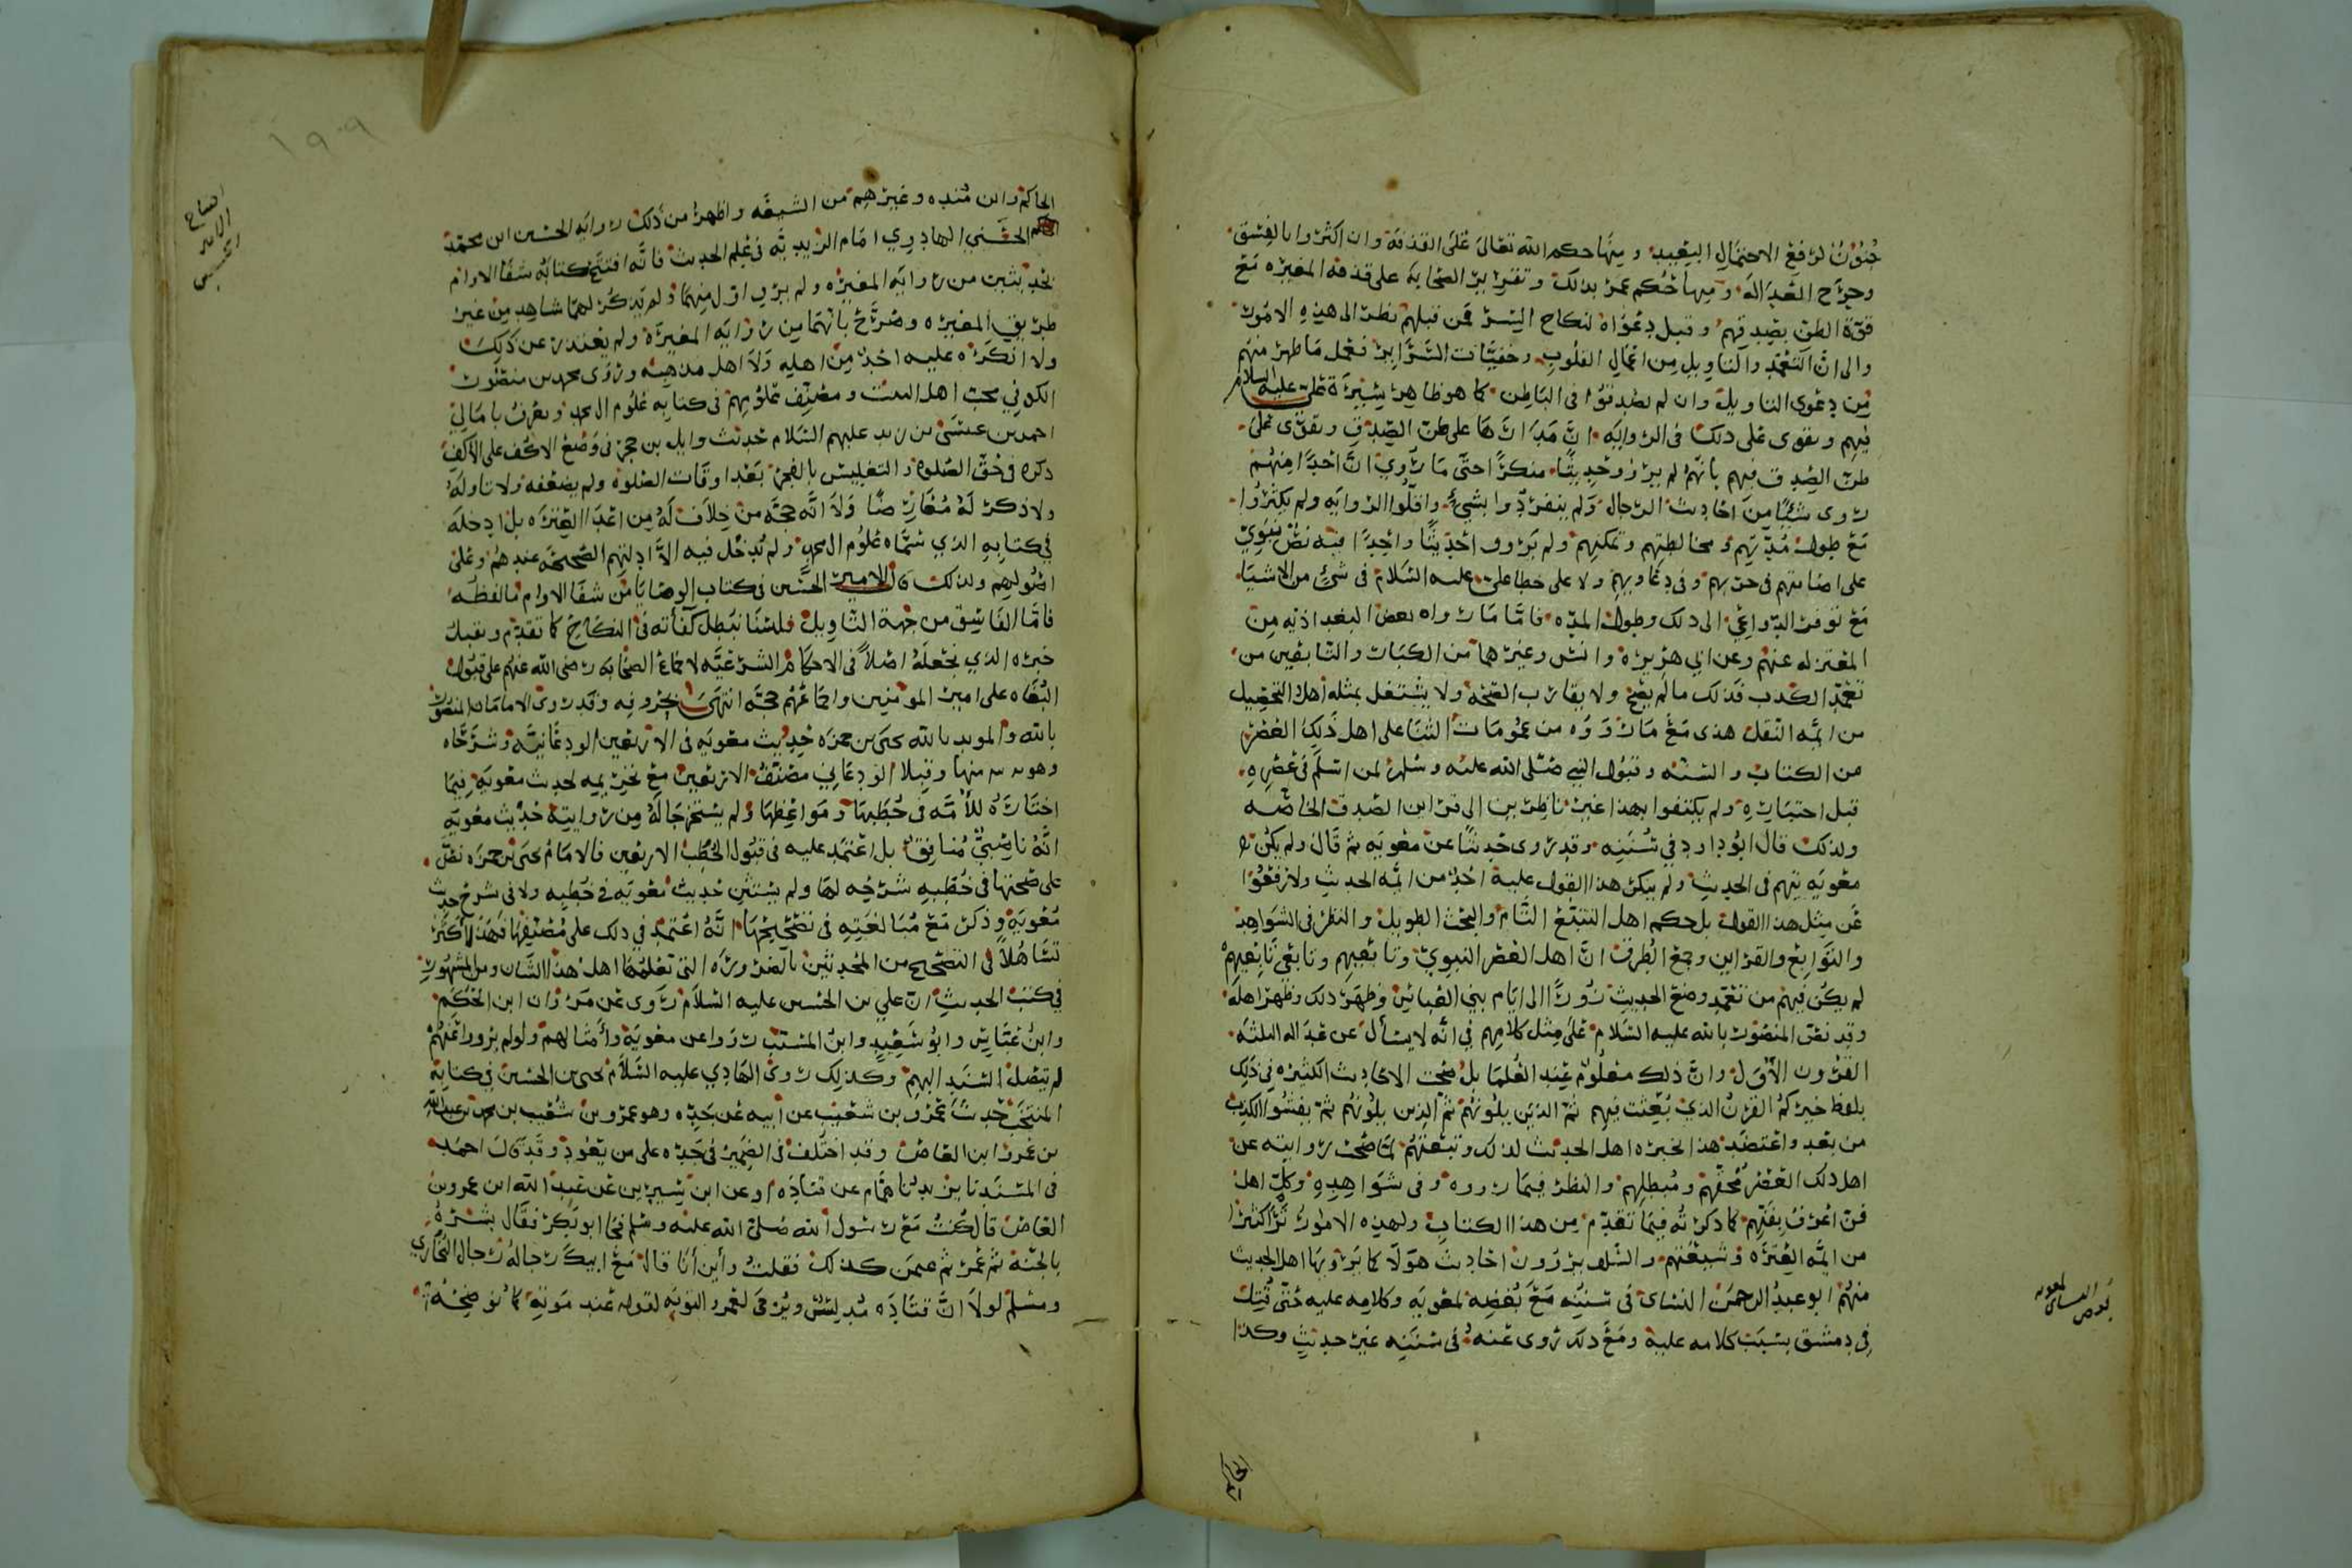 جنون لرفع الاحتمال البعيد ومنها حكم الله تعالى على القذفة وان اكثروا بالفسق
وجرح العدالة ومنها حكم عمر بذلك وتقرير الصحابة على قذفة المغيره مع
قوة الظن بصدقهم وقبل دعواه لنكاح السر فمن قبلهم نظر الى هذه الامور
والى ان التعمد والتاويل من اعمال القلوب وخفيات السراير فعمل ما ظهر منهم
من دعوى التاويل وان لم يصدقوا في الباطن كما هو ظاهر سيرة علي عليه السلام
فيهم ويقوى على ذلك في الروايه ان مدارها على ظن الصدق ويقوى على
ظن الصدق فيهم بانهم لم يرووا حديثا منكرا حتى ما روي ان احدا منهم
روى شيا من احاديث الرجال ولم ينفردوا بشيء واقلوا الروايه ولم يكثروا
مع طول مدتهم ومخالطتهم وتمكنهم ولم يرووا حديثا واحدا فيه نص نبوي
على اصابتهم في حربهم وفي دعاويهم ولا على خطا علي عليه السلام في شئ من الاشيا
مع توفر الدواعي الى ذلك وطول المده فاما ما رواه بعض البغداذيه من
المعتزله عنهم وعن ابي هريره وانس وغيرهما من الكبار والتابعين من
تعمد الكذب فذلك مالم يصح ولا يقارب الصحه ولا يشتغل بمثله اهل التحصيل
من ايمه النقل هذى مع ما ورد من عمومات الثنا على اهل ذلك العصر
من الكتاب والسنه وقبول النبي صلى الله عليه وسلم لمن اسلم في عصره
قبل اختباره ولم يكتفوا بهذا غير ناظرين الى قراين الصدق الخاصه
ولذلك قال ابو داود في سننه وقد روى حديثا عن معويه ثم قال ولم يكن
معويه يتهم في الحديث ولم ينكر هذا القول عليه احد من ايمه الحديث ولا ترفعوا
عن مثل هذا القول بل حكم اهل التتبع التام والبحث الطويل والنظر في الشواهد
والتوابع والقراين وجمع الطرق ان اهل العصر النبوي وتابعيهم وتابعي تابعيهم
لم يكن فيهم من تعمد وضع الحديث زورا الى ايام بني العباس فظهر ذلك وظهر اهله
وقد نص المنصور بالله عليه السلام على مثل كلامهم في انه لا يسأل عن عداله الثلثه
القرون الاول وان ذلك معلوم عند العلما بل صحت الاحاديث الكثيره في ذلك
بلفظ خيركم القرن الذي بعثت فيهم ثم الذين يلونهم ثم الذين يلونهم ثم يفشوا الكذب
من بعد واعتضد هذا بخبره اهل الحديث لذلك وتتبعهم لما صحت روايته عن
اهل ذلك العصر محقهم ومبطلهم والنظر فيما رووه وفي شواهده وكل اهل
فن اعرف بفنهم كما ذكرته فيما تقدم من هذا الكتاب ولهذه الامور نرى كثيرا
من ايمه العتره وشيعتهم والسلف يروون احاديث هولا كما يرويها اهل الحديث
منهم ابو عبد الرحمن النساي في سننه مع بغضه لمعويه وكلامه عليه حتى قتل
في دمشق بسبب كلامه عليه ومع ذلك روى عنه في سننه غير حديث وكذا
بغض النساي لمعويه
الحاكم
١٩٠٩
الحاكم وابن منده وغيرهم من الشيعه واظهر من ذلك روايه الحسين ابن محمد
الحسني الهادوي امام الزيديه في علم الحديث فانه افتتح كتابه شفا الاوام
بحديثين من روايه المغيره ولم يرو اول منهما ولم يذكر لهما شاهد من غير
طريق المغيره وصرح بانهما من روايه المغيرة ولم يعتذر عن ذلك
ولا انكره عليه احد من اهله ولا اهل مذهبه وروى محمد بن منصور
الكوفي محب اهل البيت ومصنف علومهم في كتابه علوم ال محمد ويعرف بامالي
احمد بن عيسى بن زيد عليهم السلام حديث وايل بن حجر في وضع الاكف على الاكف
ذكره في حق الصلوه والتغليس بالفجر بعد اوقات الصلوه ولم يضعفه ولا تاوله
ولا ذكر له معارضا ولا انه حجه من خلاف له من اعدا العتره بل ادخله
في كتابه الذي سماه علوم ال محمد ولم يدخل فيه الا ادلتهم الصحيحه عندهم وعلى
اصولهم ولذلك قال الامير الحسين في كتاب الوصايا من شفا الاوام ما لفظه
فاما الفاسق من جهة التاويل فلسنا نبطل كفأته في النكاح كما تقدم ونقبل
خبره الذي نجعله اصلا في الاحكام الشرعيه لاجماع الصحابه رضى الله عنهم على قبول
البغاه على امير المومنين واجماعهم حجه انتهى بحروفه وقد روى الامامان المنصور
بالله والمويد بالله يحيى بن حمزه حديث معويه في الاربعين الودعانيه وشرحاه
وهو منها وقبلا الودعاني مصنف الاربعين مع تخريجه لحديث معويه فيما
اختاره للأمه في خطبها ومواعظها ولم يستخرجا له من روايته حديث معويه
انه ناصبي منافق بل اعتمد عليه في قبول الخطب الاربعين فالامام يحيى بن حمزه نص
على صحتها في خطبه شرحه لها ولم يستثن حديث معويه في خطبه ولا في شرح حديث
معويه وذكر مع مبالغته في تصحيحها انه اعتمد في ذلك على مصنفها فهذا اكثر
تساهلا في التصحيح من المحدثين بالضروره التي تعلمها اهل هذا الشان ومن المشهور
في كتب الحديث ان علي بن الحسين عليه السلام روى عن مروان ابن الحكم
وابن عباس وابو سعيد وابن المسيب رووا عن معويه وأمثالهم ولو لم يرووا عنهم
لم يتصل السند اليهم وكذلك روى الهادي عليه السلام يحيى بن الحسين في كتابه
المنتخب حديث عمرو بن شعيب عن ابيه عن جده وهو عمرو بن شعيب بن محمد بن عبد الله
بن عمرو ابن العاص وقد اختلف في الضمير في جده على من يعود وقد قال احمد
في المسند نا يزيد نا همام عن قتاده وعن ابن سيرين عن عبد الله ابن عمرو بن
العاص قال كنت مع رسول الله صلى الله عليه وسلم فجا ابو بكر فقال بشره
بالجنه ثم عمر ثم عثمن كذلك فقلت وأين أنا قال مع ابيك رجاله رجال البخاري
ومسلم لولا ان قتاده مدلس ويرى لعمرو التوبه لقوله عند موته كما توضحه
امام
الحسين